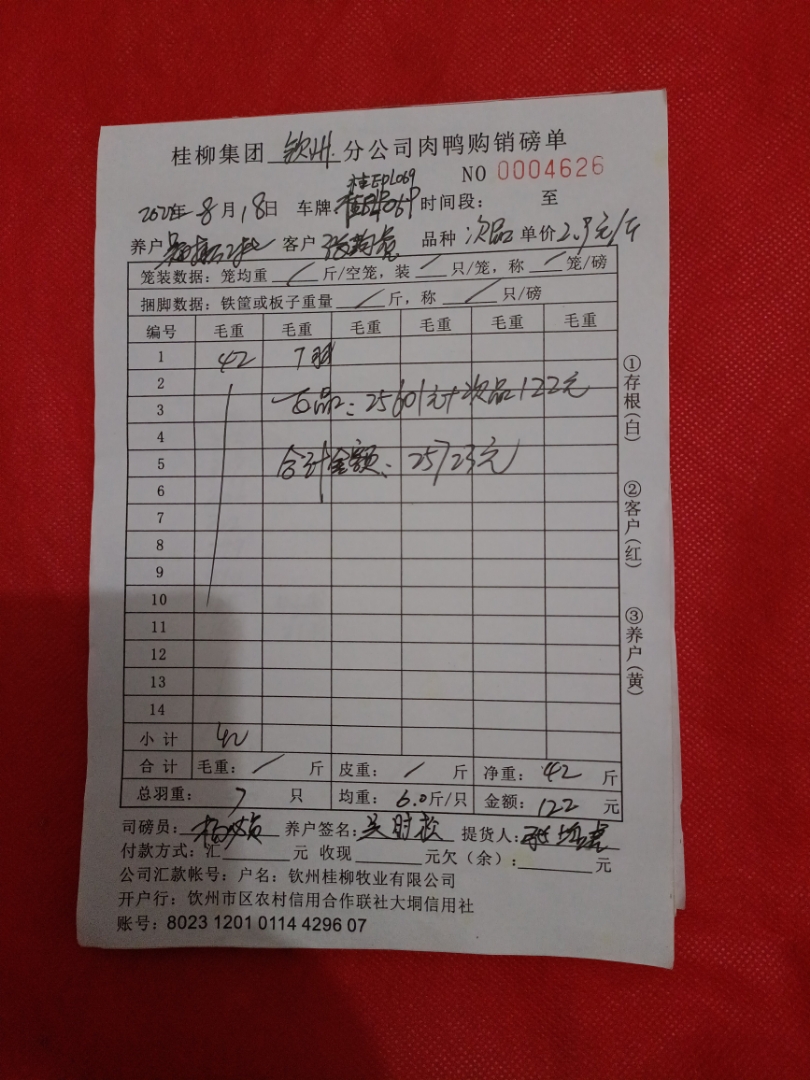 桂柳集团 钦州 分公司肉鸭购销磅单
NO 0004626
桂EPL069
8月18日 车牌 时间段: 至
养户 客户 品种 次品 单价2.9元/斤
笼装数据:笼均重 / 斤/空笼,装 / 只/笼,称 / 笼/磅
捆脚数据:铁筐或板子重量 / 斤,称 / 只/磅
编号 毛重 毛重 毛重 毛重 毛重 毛重
1 42 7羽
2
3 品:25601元+次品122元
4
5 合计金额:25723元
6
7
8
9
10
11
12
13
14
小计 42
合计 毛重: / 斤 皮重: / 斤 净重: 42 斤
总羽重: 7 只 均重: 6.0斤/只 金额: 122 元
司磅员: 养户签名: 提货人:
付款方式:汇 元 收现 元欠(余): 元
公司汇款帐号:户名:钦州桂柳牧业有限公司
开户行:钦州市区农村信用合作联社大垌信用社
账号:8023 1201 0114 4296 07
①存根(白)
②客户(红)
③养户(黄)